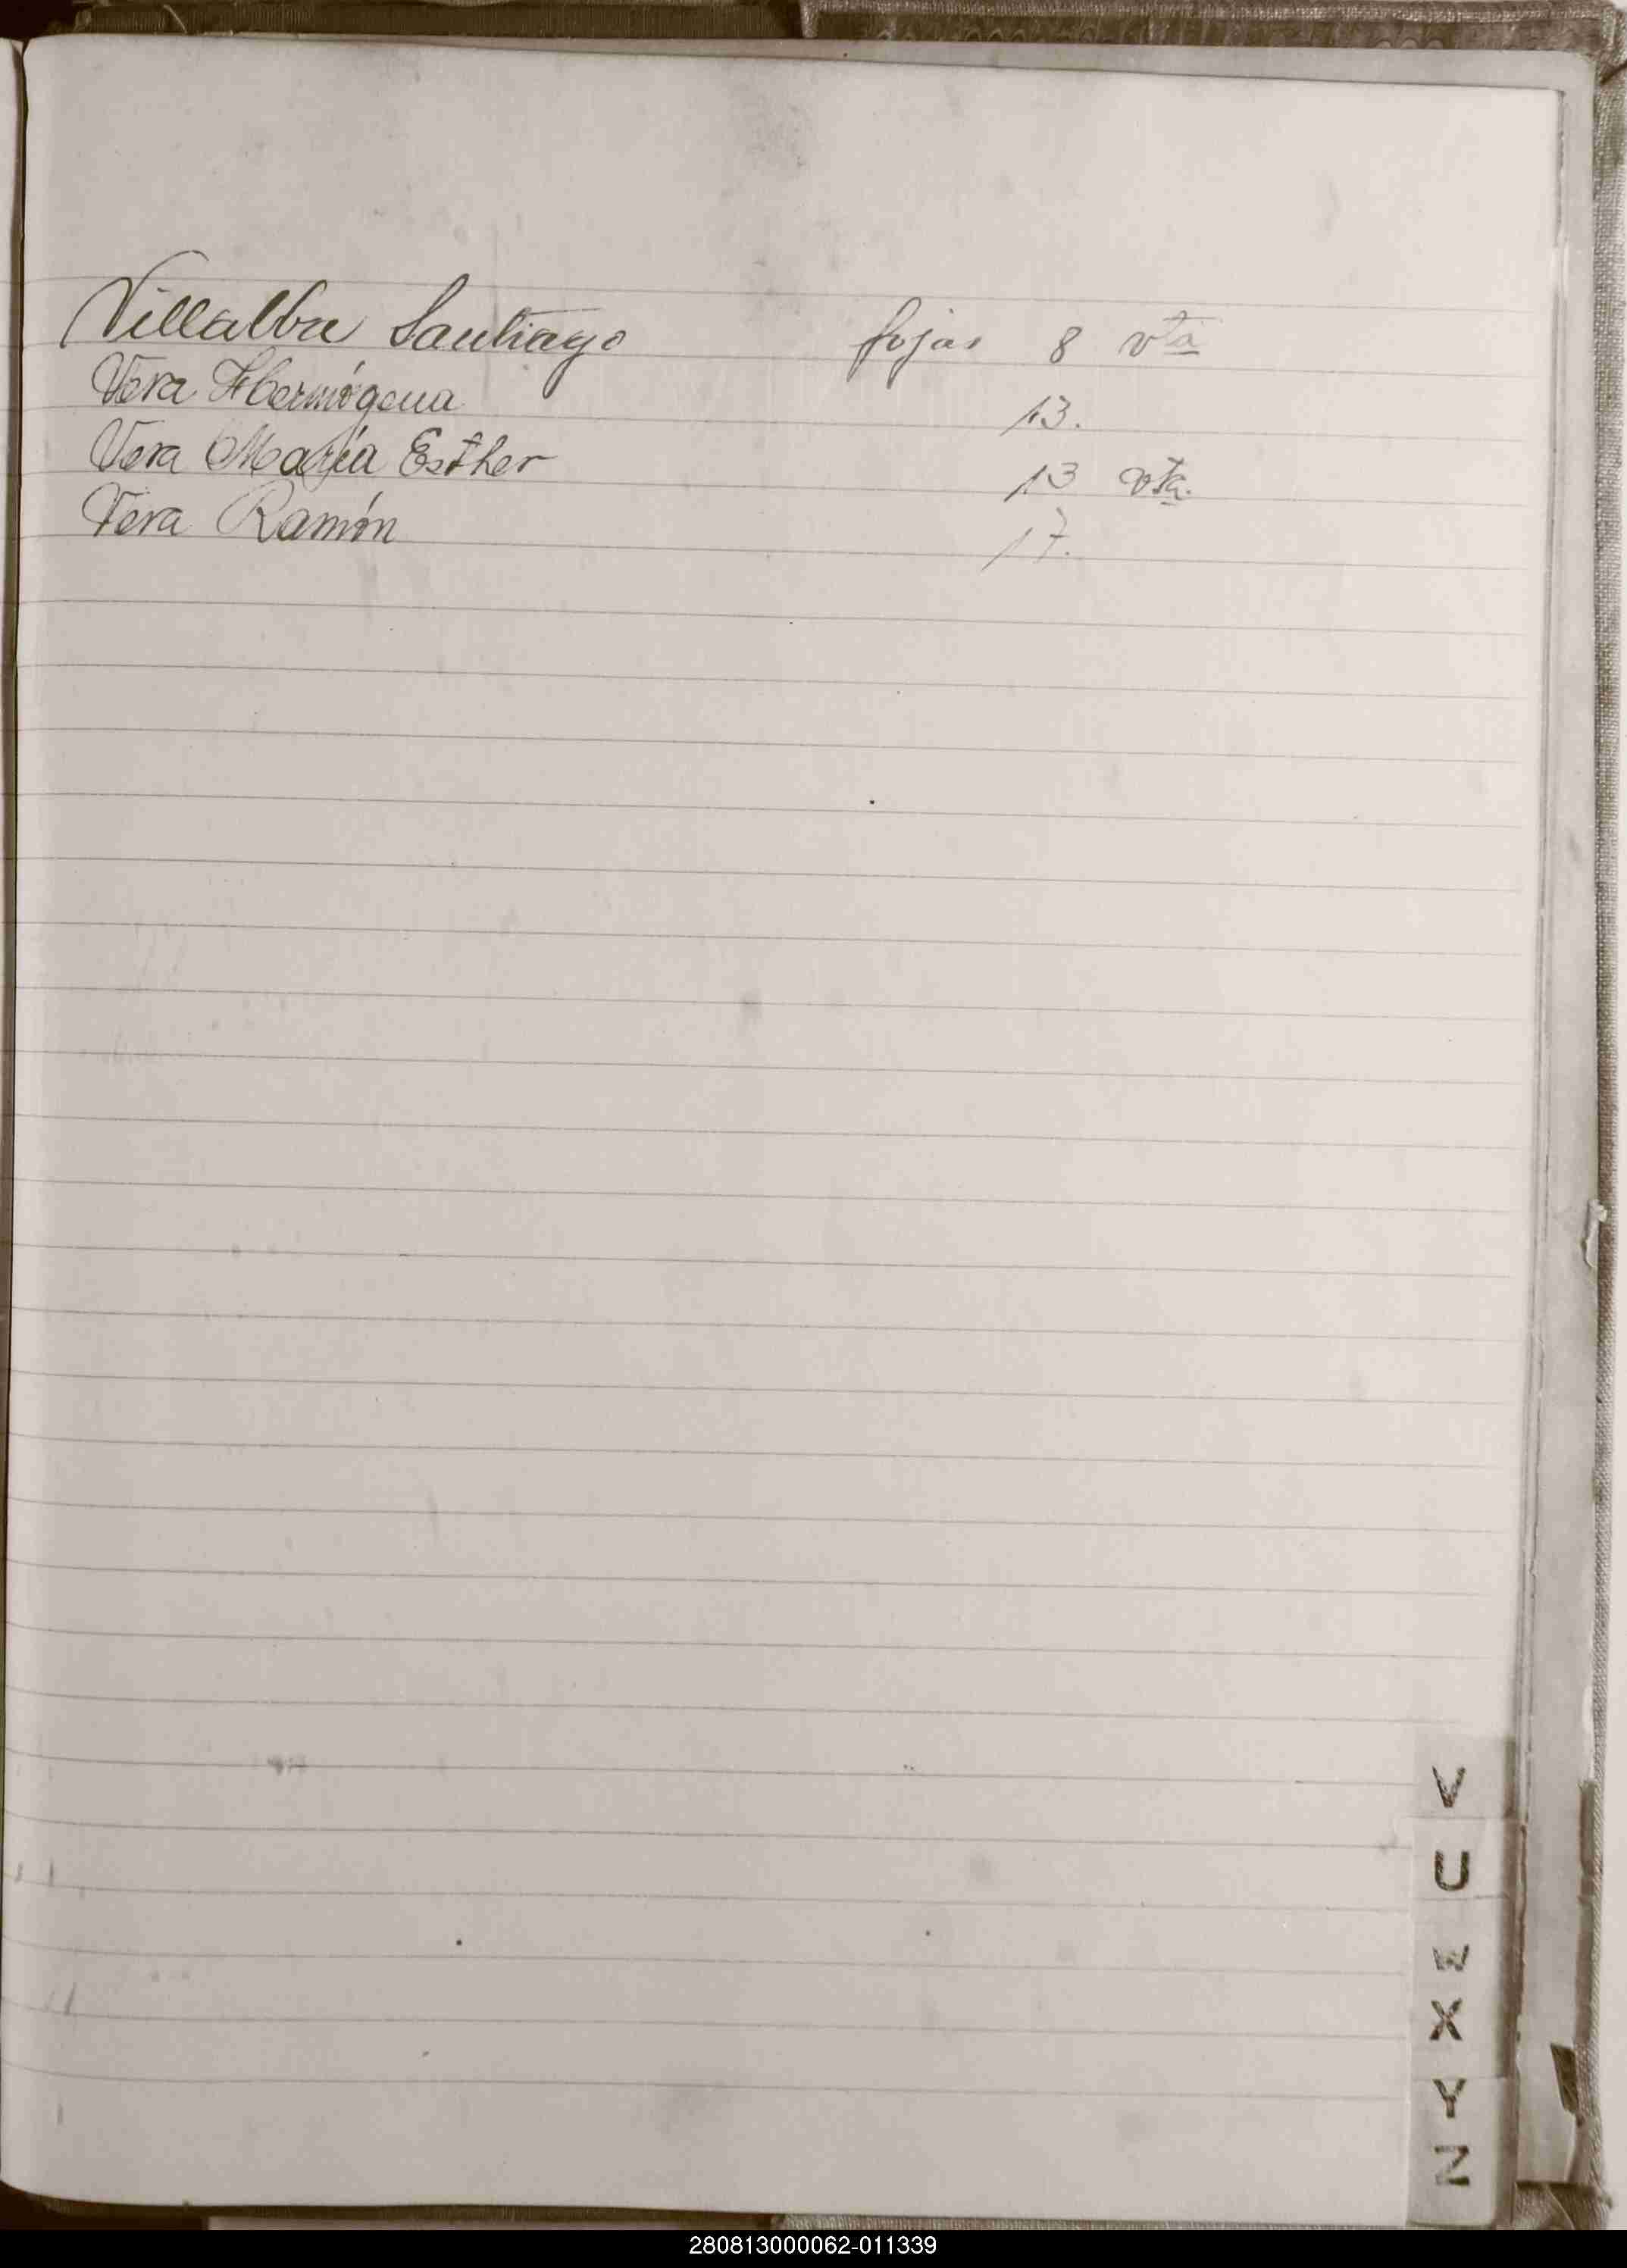 Villalba Santiago fojas 8 vta
Vera Hermógena 13.
Vera María Esther 13 vta.
Vera Ramón 17.
V
U
W
X
Y
Z
280813000062-011339